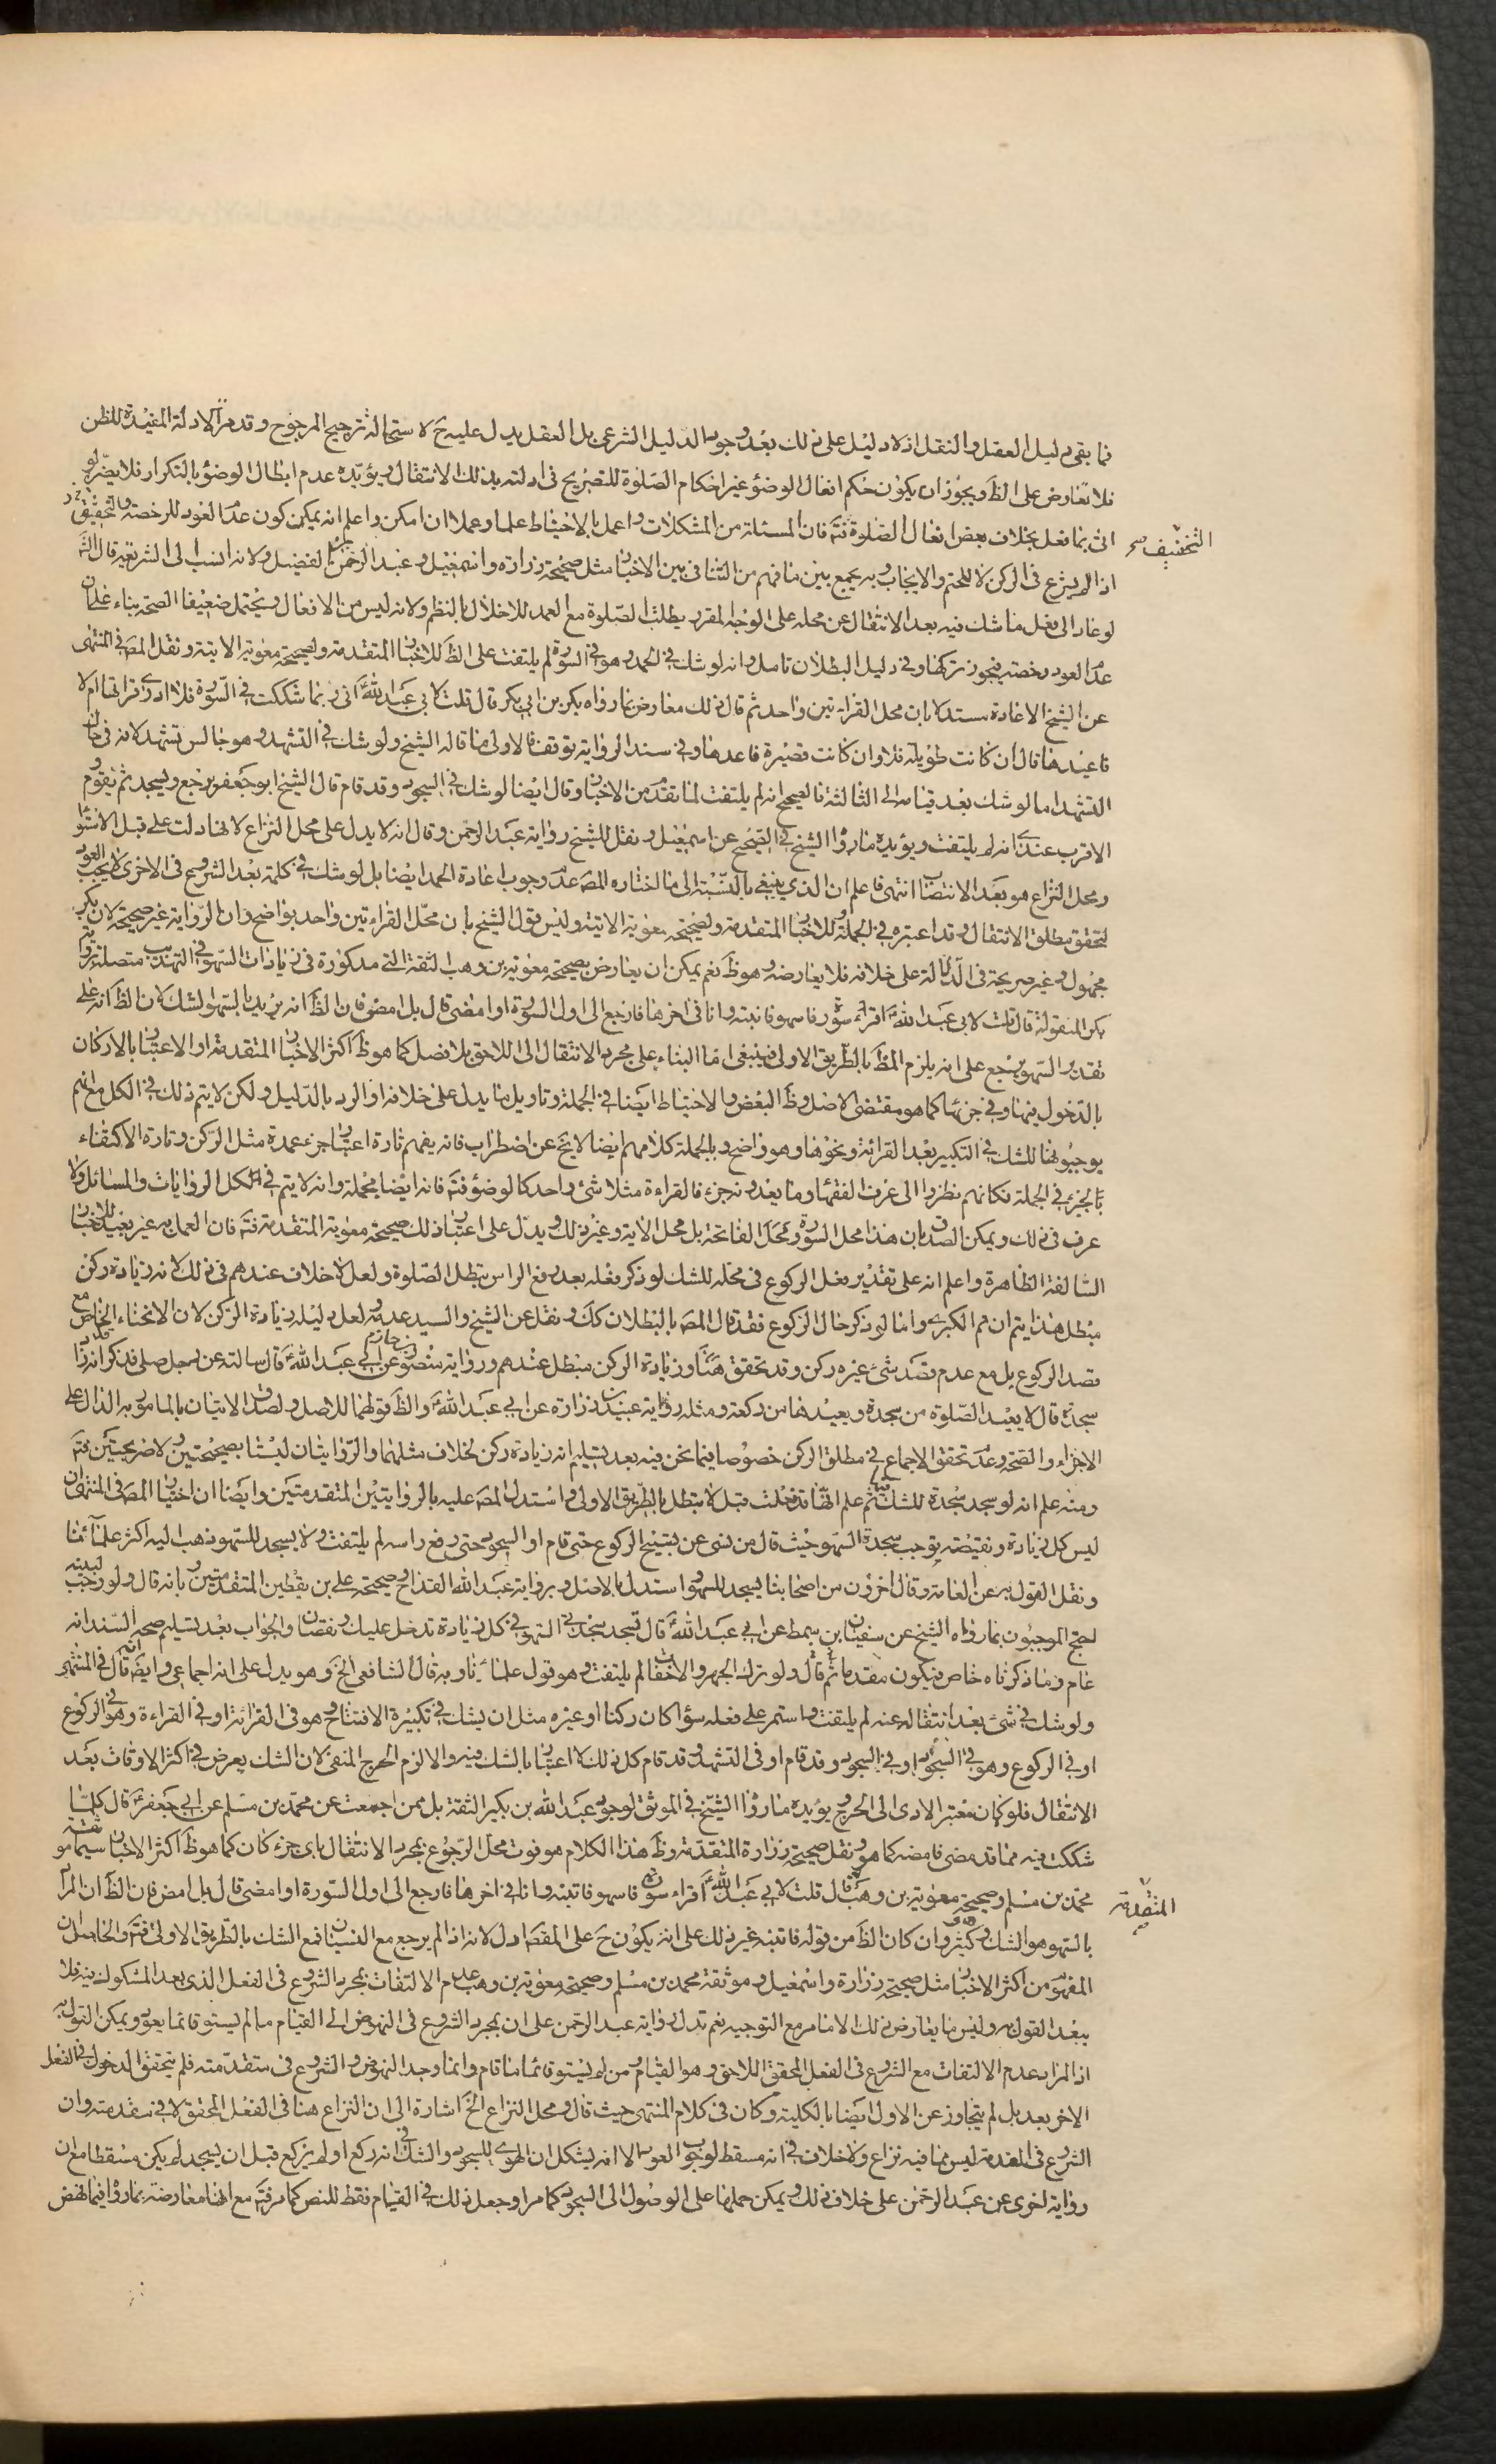 فما بقى دليل العقل والنقل اذ لا دليل على ذلك بعد وجود الدليل الشرعى بل العقل يدل عليه ح لاستحالة ترجيح المرجوح وقد مر الادلة المفيدة للظن
فلا تعارض على الظ ويجوز ان يكون حكم افعال الوضوء غير احكام الصلوة للتصريح فى ادلته بذلك الانتقال ويؤيده عدم ابطال الوضوء بالتكرار فلا يضره لو
اتى بما فعل بخلاف بعض افعال الصلوة فتم فان المسئلة من المشكلات واعمل بالاحتياط علما وعملا ان امكن واعلم انه يمكن كون عدم العود للرخصة والتخفيف
التخفيف صح
اذا لم يشرع فى الركن لا للحتم والايجاب وبه يجمع بين ما فهم من التنافى بين الاخبار مثل صحيحة زرارة واسمعيل وعبد الرحمن لفضيل ولانه انسب الى الشريعة قال الش
لو عاد الى فعل ما شك فيه بعد الانتقال عن محله على الوجه المقرر يبطل الصلوة مع العمد للاخلال بالنظم ولانه ليس من الافعال ويحتمل ضعيفا الصحة بناء على ان
عدم العود رخصة فيجوز تركها وفى دليل البطلان تامل وانه لو شك فى الحمد وهو فى السورة لم يلتفت على الظ للاخبار المتقدمة ولصحيحة معوية الاتية ونقل المص فى المنتهى
عن الشيخ الاعادة مستدلا بان محل القراءتين واحد ثم قال ذلك معارض بما رواه بكر بن ابى بكر قال قلت لابى عبد الله ع انى ربما شككت فى السورة فلا ادرى قراتها ام لا
فاعيدها قال ان كانت طويلة فلا وان كانت قصيرة فاعدها وفى سند الرواية توقف فالاولى ما قاله الشيخ ولو شك فى التشهد وهو جالس تشهد لانه فى حال
التشهد اما لو شك بعد قيامه الى الثالثة فالصحيح انه لم يلتفت لما تقدم من الاخبار وقال ايضا لو شك فى السجود وقد قام قال الشيخ ابو جعفر يرجع ويسجد ثم يقوم و
الاقرب عندى انه لم يلتفت ويؤيده ما رواه الشيخ فى الصحيح عن اسمعيل ونقل للشيخ رواية عبد الرحمن وقال انه لا يدل على محل النزاع لانها دلت على قبل الاستواء
ومحل النزاع هو بعد الانتصاب انتهى فاعلم ان الذى ينبغى بالنسبة الى ما اختاره المص عدم وجوب اعادة الحمد ايضا بل لو شك فى كلمة بعد الشروع فى الاخرى لا يجب العود
لتحقق مطلق الانتقال وقد اعتبره فى الجملة وللاخبار المتقدمة ولصحيحة معوية الاتية وليس قول الشيخ بان محل القراءتين واحد بواضح وان الرواية غير صحيحة لان بكر
مجهول وغير صريحة فى الدلالة على خلافه فلا يعارضه وهو ظ نعم يمكن ان يعارض بصحيحة معوية بن وهب الثقة التى مذكورة فى زيادات السهو فى التهذيب متصلة برواية
بكر المنقولة قال قلت لابى عبد الله ع اقرء سورة فاسهو فانتبه وانا فى اخرها فارجع الى اول السورة او امضى قال بل امض فان الظ انه يريد بالسهو الشك لان الظ انه على
تقدير السهو يرجع على انه يلزم المط بالطريق الاولى فينبغى اما البناء على مجرد الانتقال الى اللاحق بلا فصل كما هو ظ اكثر الاخبار المتقدمة او الاعتبار بالاركان
بالدخول فيها وفى جزئها كما هو مقتضى الاصل وظ البعض والاحتياط ايضا فى الجملة وتاويل ما يدل على خلافه او الرد بالدليل ولكن لا يتم ذلك فى الكل مع انهم
يوجبونها للشك فى التكبير بعد القرائة ونحوها وهو واضح وبالجملة كلامهم ايضا لا يخ عن اضطراب فانه يفهم تارة اعتبار جزء عمدة مثل الركن وتارة الاكتفاء
بالجزء فى الجملة فكانهم نظروا الى عرف الفقهاء وما يعدونه جزء فالقراءة مثلا شئ واحد كالوضوء فتم فانه ايضا مجملة وانه لا يتم فى الكل الروايات والمسائل ولا
عرف فى ذلك ويمكن الصدق بان هذا محل السورة ومحل الفاتحة بل محل الاية وغير ذلك ويدل على اعتبار ذلك صحيحة معوية المتقدمة فتم فان العمل به غير بعيد للاخبار
السالفة الظاهرة واعلم انه على تقدير فعل الركوع فى محله للشك لو ذكر فعله بعد رفع الراس يبطل الصلوة ولعل لا خلاف عندهم فى ذلك لانه زيادة ركن
مبطل هذا يتم ان تم الكبرى واما لو ذكر حال الركوع فقد قال المص بالبطلان كك ونقل عن الشيخ والسيد عدمه ولعل دليله زيادة الركن لان الانحناء الخاص مع
قصد الركوع بل مع عدم قصد شئ غيره ركن وقد تحقق هنا وزيادة الركن مبطل عندهم ورواية منصور بن حازم عن ابى عبد الله ع قال سالته عن رجل صلى فذكر انه زاد
سجدة قال لا يعيد الصلوة من سجدة ويعيدها من ركعة ومثله رواية عبيد بن زرارة عن ابى عبد الله ع والظ قولهما للاصل ولصدق الاتيان بالمامور به الدال على
الاجزاء والصحة وعدم تحقق الاجماع فى مطلق الركن خصوصا فيما نحن فيه بعد تسليم انه زيادة ركن لخلاف مثلهما والروايتان ليستا بصحيحتين ولا صريحتين فتم
ومنه علم انه لو سجد سجدة للشك فيها ثم علم انها قد فعلت قبل لا يبطل بالطريق الاولى واستدل المص عليه بالروايتين المتقدمتين وايضا ان اختيار المص فى المنتهى ان
ليس كل زيادة ونقيصة يوجب سجدة السهو حيث قال من نسى عن تسبيح الركوع حتى قام او السجود حتى رفع راسه لم يلتفت ولا يسجد للسهو ذهب اليه اكثر علمائنا
ونقل القول به عن العامة وقال اخرون من اصحابنا يسجد للسهو واستدل بالاصل وبرواية عبد الله القداح وصحيحة على بن يقطين المتقدمتين وبانه قال ولو وجب لبينه
احتج الموجبون بما رواه الشيخ عن سفيان بن سمط عن ابى عبد الله ع قال تسجد سجدتى السهو فى كل زيادة تدخل عليك ونقصان والجواب بعد تسليم صحة السند انه
عام وما ذكرناه خاص فيكون مقدما ثم قال ولو ترك الجهر والاخفات لم يلتفت وهو قول علمائنا وبه قال الشافعى الخ وهو يدل على انه اجماعى وايض قال فى المنتهى
ولو شك فى شئ بعد انتقاله عنه لم يلتفت واستمر على فعله سواء كان ركنا او غيره مثل ان يشك فى تكبيرة الافتتاح وهو فى القرائة او فى القراءة وهو فى الركوع
او فى الركوع وهو فى السجود او فى السجود وقد قام او فى التشهد وقد قام كل ذلك لا اعتبار بالشك فيه والا لزم الحرج المنفى لان الشك يعرض فى اكثر الاوقات بعد
الانتقال فلو كان معتبرا لادى الى الحرج ويؤيده ما رواه الشيخ فى الموثق لوجود عبد الله بن بكير الثقة بل ممن اجمعت عن محمد بن مسلم عن ابى جعفر ع قال كلما
شككت فيه مما قد مضى فامضه كما هو ونقل صحيحة زرارة المتقدمة وظ هذا الكلام هو فوت محل الرجوع بمجرد الانتقال باى جزء كان كما هو ظ اكثر الاخبار سيما موثقة
محمد بن مسلم وصحيحة معوية بن وهب قال قلت لابى عبد الله ع اقراء سورة فاسهو فانتبه وانا فى اخرها فارجع الى اول السورة او امضى قال بل امض فان الظ ان المراد
المتقدمة
بالسهو هو الشك وكثير وان كان الظ من قوله فانتبه غير ذلك على انه يكون ح على المقصَ ادل لانه اذا لم يرجع مع النسيان فمع الشك بالطريق الاولى فتم والحاصل ان
المفهوم من اكثر الاخبار مثل صحيحة زرارة واسمعيل وموثقة محمد بن مسلم وصحيحة معوية بن وهب عدم الالتفات بمجرد الشروع فى الفعل الذى بعد المشكوك فيه فلا
يبعد القول به وليس ما يعارض ذلك الا ما مر مع التوجيه نعم تدل رواية عبد الرحمن على ان بمجرد الشروع فى النهوض الى القيام ما لم يستو قائما يعود ويمكن القول به
اذ المراد عدم الالتفات مع الشروع فى الفعل المحقق اللاحق وهو القيام ومن لم يستو قائما ما قام وانما وجد النهوض والشروع فى متقدمته فلم يتحقق الدخول فى الفعل
الاخر بعد بل لم يتجاوز عن الاول ايضا بالكلية وكان فى كلام المنتهى حيث قال ومحل النزاع الخ اشارة الى ان النزاع هنا فى الفعل المحقق لا فى مقدمته وان
الشروع فى المقدمة ليس مما فيه نزاع ولا خلاف فى انه مسقط لوجوب العود الا انه يشكل ان الهوى للسجود والشك فى انه ركع او لم يركع قبل ان يسجد لم يكن مسقطا مع ان
رواية اخرى عن عبد الرحمن على خلاف ذلك ويمكن حملها على الوصول الى السجود كما مر او جعل ذلك فى القيام فقط للنص كما مر فتم مع انها معارضة بما رواه فيما نهض